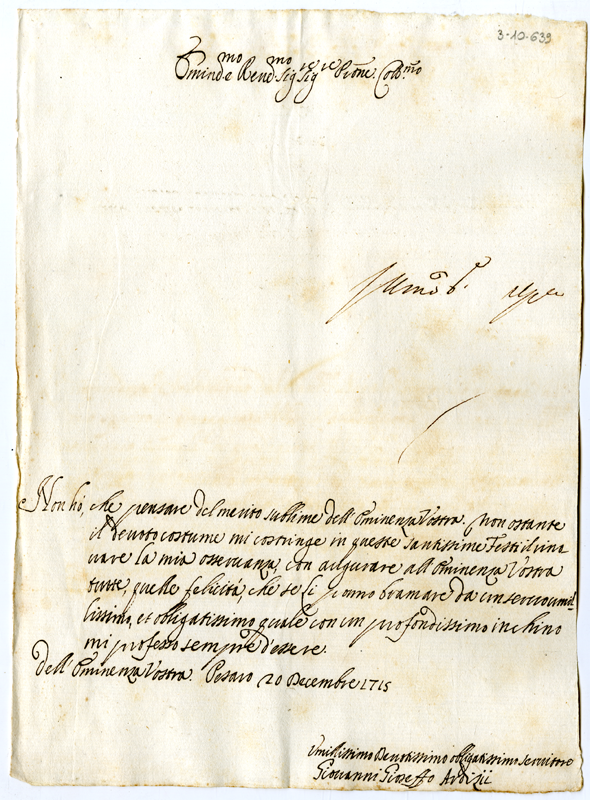 3-10-639
Emin.mo e Rend.mo Sig.re Sig.re Prone. Colt.mo
Non hò, che pensare del merito sublime dell'Eminenza Vostra. Non ostante
il devoto costume mi costringe in queste santissime Feste di rino
vare la mia osservanza, con augurare all'Eminenza Vostra
tutte, quelle felicità, che se li ponno bramare da un servo umil
lissimo, et obligatissimo quale con un profondissimo inchino
mi professo sempre d'essere.
Dell'Eminenza Vostra. Pesaro 20 Decembre 1715
Umilissimo Devotissimo obligatissimo servitore
Giovanni Gioseffo